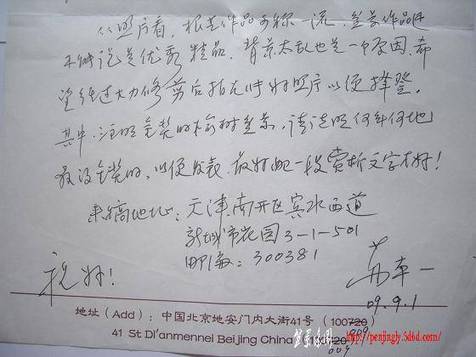 从照片看，根艺作品可称一流，盆景作品
不能说是优秀精品。背景太乱也是一个原因，希
望经过大力修剪后拍几张好照片以便择登。
其中，注明金奖的榆树盆景，请说明何年何地
最后金奖的，以便发表。最好配一段赏析文字才好！
来稿地址：天津南开区宾水西道
新城市花园3-1-501
邮编：300381
祝好！
苏本一
09.9.1
地址（Add）：中国北京地安门内大街41号（100720
009
41 St Di'anmennei Beijing China
720
009
http://penjingly.5d6d.com